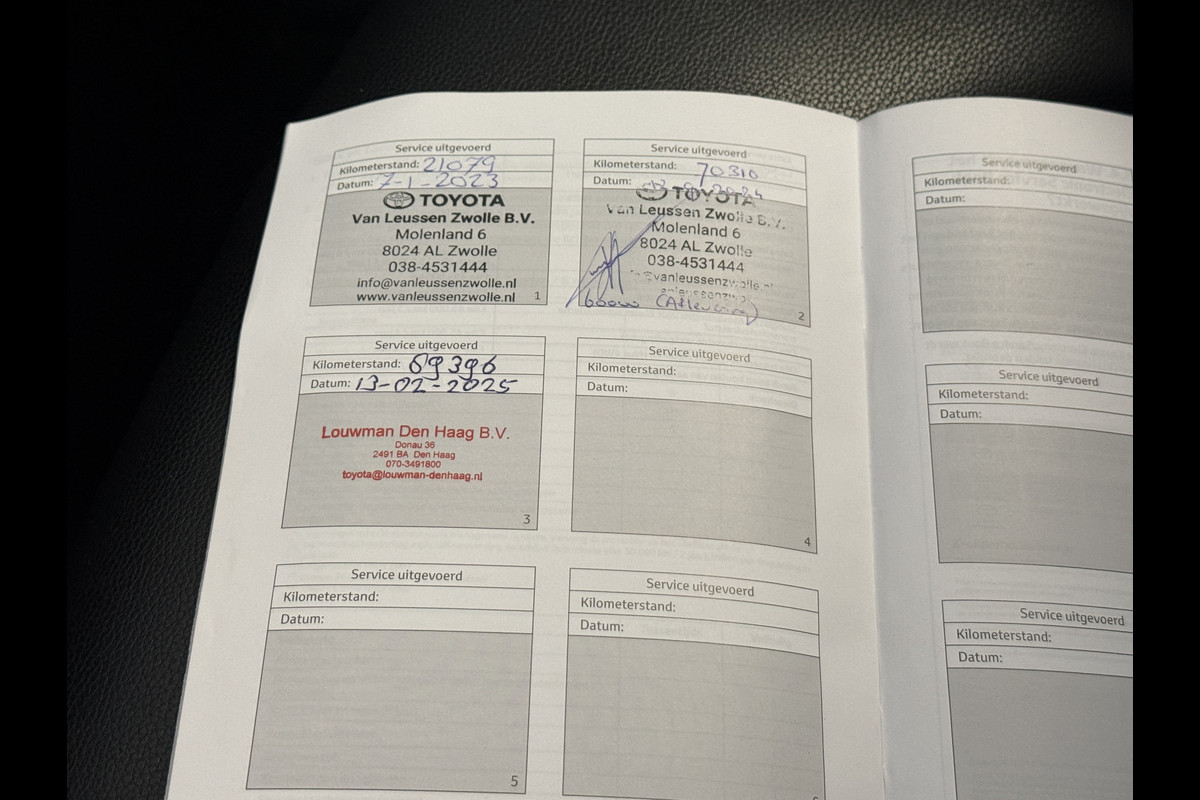 Service uitgevoerd
Kilometerstand: 21079
Datum: 7-1-2023
TOYOTA
Van Leussen Zwolle B.V.
Molenland 6
8024 AL Zwolle
038-4531444
info@vanleussenzwolle.nl
www.vanleussenzwolle.nl
1
Service uitgevoerd
Kilometerstand: 70310
Datum:
TOYOTA
Van Leussen Zwolle B.V.
Molenland 6
8024 AL Zwolle
038-4531444
vanleussenzwolle.nl
2
Service uitgevoerd
Kilometerstand: 69396
Datum: 13-02-2025
Louwman Den Haag B.V.
Donau 36
2491 BA Den Haag
070-3491800
toyota@louwman-denhaag.nl
3
Service uitgevoerd
Kilometerstand:
Datum:
4
Service uitgevoerd
Kilometerstand:
Datum:
5
Service uitgevoerd
Kilometerstand:
Datum:
Service uitgevoerd
Kilometerstand:
Datum:
Service uitgevoerd
Kilometerstand:
Datum:
Service uitgevoerd
Kilometerstand:
Datum: